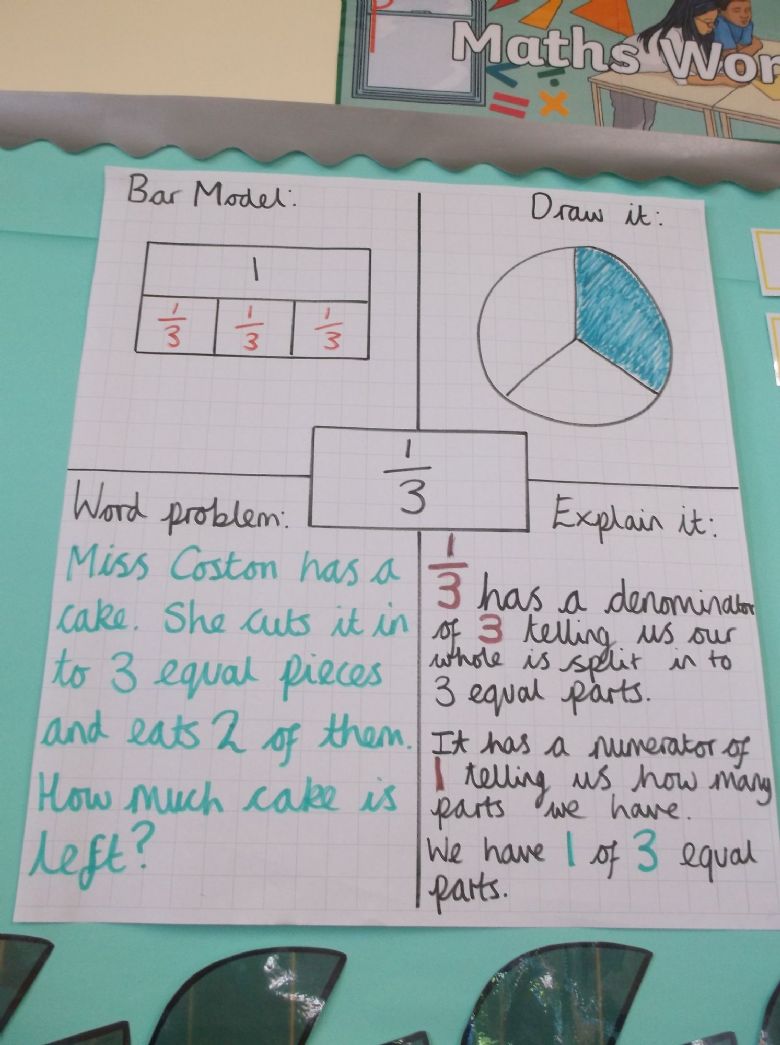 Maths Wor
Bar Model:
1
1/3 1/3 1/3
Draw it:
1/3
Word problem:
Miss Coston has a
cake. She cuts it in
to 3 equal pieces
and eats 2 of them.
How much cake is
left?
Explain it:
1/3 has a denominator
of 3 telling us our
whole is split in to
3 equal parts.
It has a numerator of
1 telling us how many
parts we have.
We have 1 of 3 equal
parts.